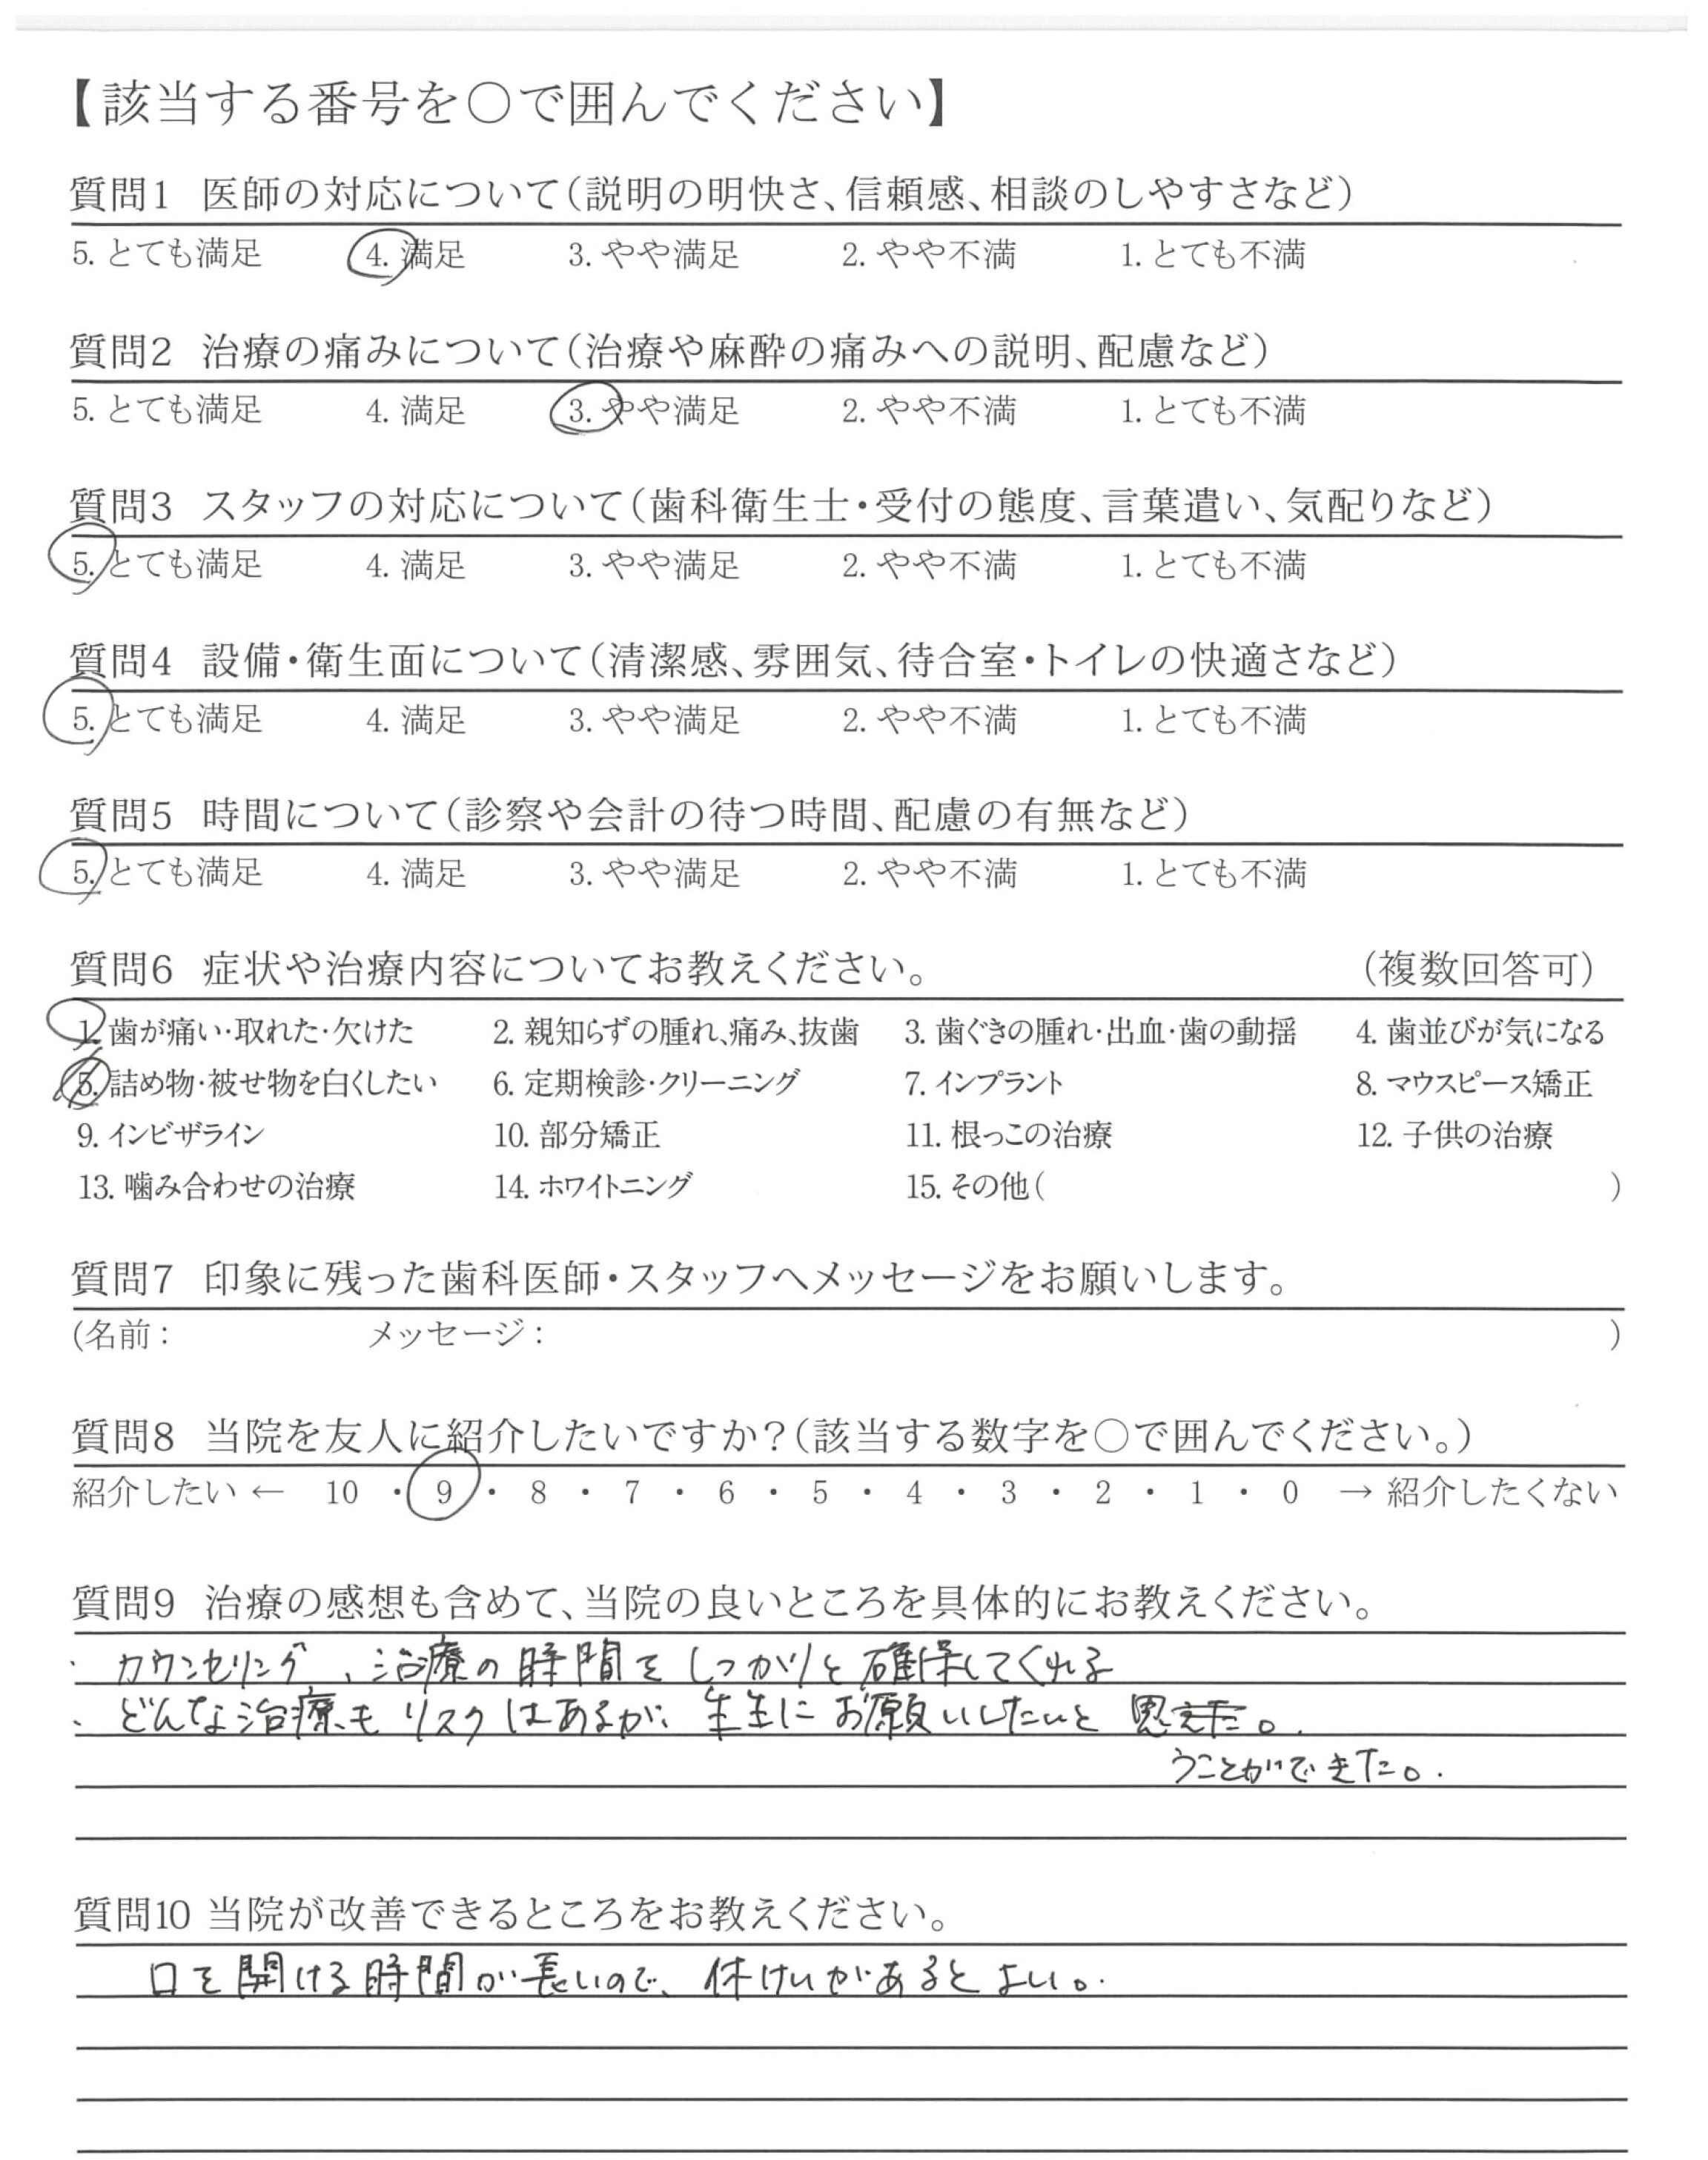 【該当する番号を○で囲んでください】
質問1 医師の対応について(説明の明快さ、信頼感、相談のしやすさなど)
5. とても満足 4. 満足 3. やや満足 2. やや不満 1. とても不満
質問2 治療の痛みについて(治療や麻酔の痛みへの説明、配慮など)
5. とても満足 4. 満足 3. やや満足 2. やや不満 1. とても不満
質問3 スタッフの対応について(歯科衛生士・受付の態度、言葉遣い、気配りなど)
5. とても満足 4. 満足 3. やや満足 2. やや不満 1. とても不満
質問4 設備・衛生面について(清潔感、雰囲気、待合室・トイレの快適さなど)
5. とても満足 4. 満足 3. やや満足 2. やや不満 1. とても不満
質問5 時間について(診察や会計の待つ時間、配慮の有無など)
5. とても満足 4. 満足 3. やや満足 2. やや不満 1. とても不満
質問6 症状や治療内容についてお教えください。 (複数回答可)
1. 歯が痛い・取れた・欠けた 2. 親知らずの腫れ、痛み、抜歯 3. 歯ぐきの腫れ・出血・歯の動揺 4. 歯並びが気になる
5. 詰め物・被せ物を白くしたい 6. 定期検診・クリーニング 7. インプラント 8. マウスピース矯正
9. インビザライン 10. 部分矯正 11. 根っこの治療 12. 子供の治療
13. 噛み合わせの治療 14. ホワイトニング 15. その他( )
質問7 印象に残った歯科医師・スタッフへメッセージをお願いします。
(名前: メッセージ: )
質問8 当院を友人に紹介したいですか?(該当する数字を○で囲んでください。)
紹介したい ← 10 ・ 9 ・ 8 ・ 7 ・ 6 ・ 5 ・ 4 ・ 3 ・ 2 ・ 1 ・ 0 → 紹介したくない
質問9 治療の感想も含めて、当院の良いところを具体的にお教えください。
・カウンセリング、治療の時間をしっかりと確保してくれる
・どんな治療もリスクはあるが、先生にお願いしたいと思えた。
うことができた。
質問10 当院が改善できるところをお教えください。
口を開ける時間が長いので、休けいがあるとよい。